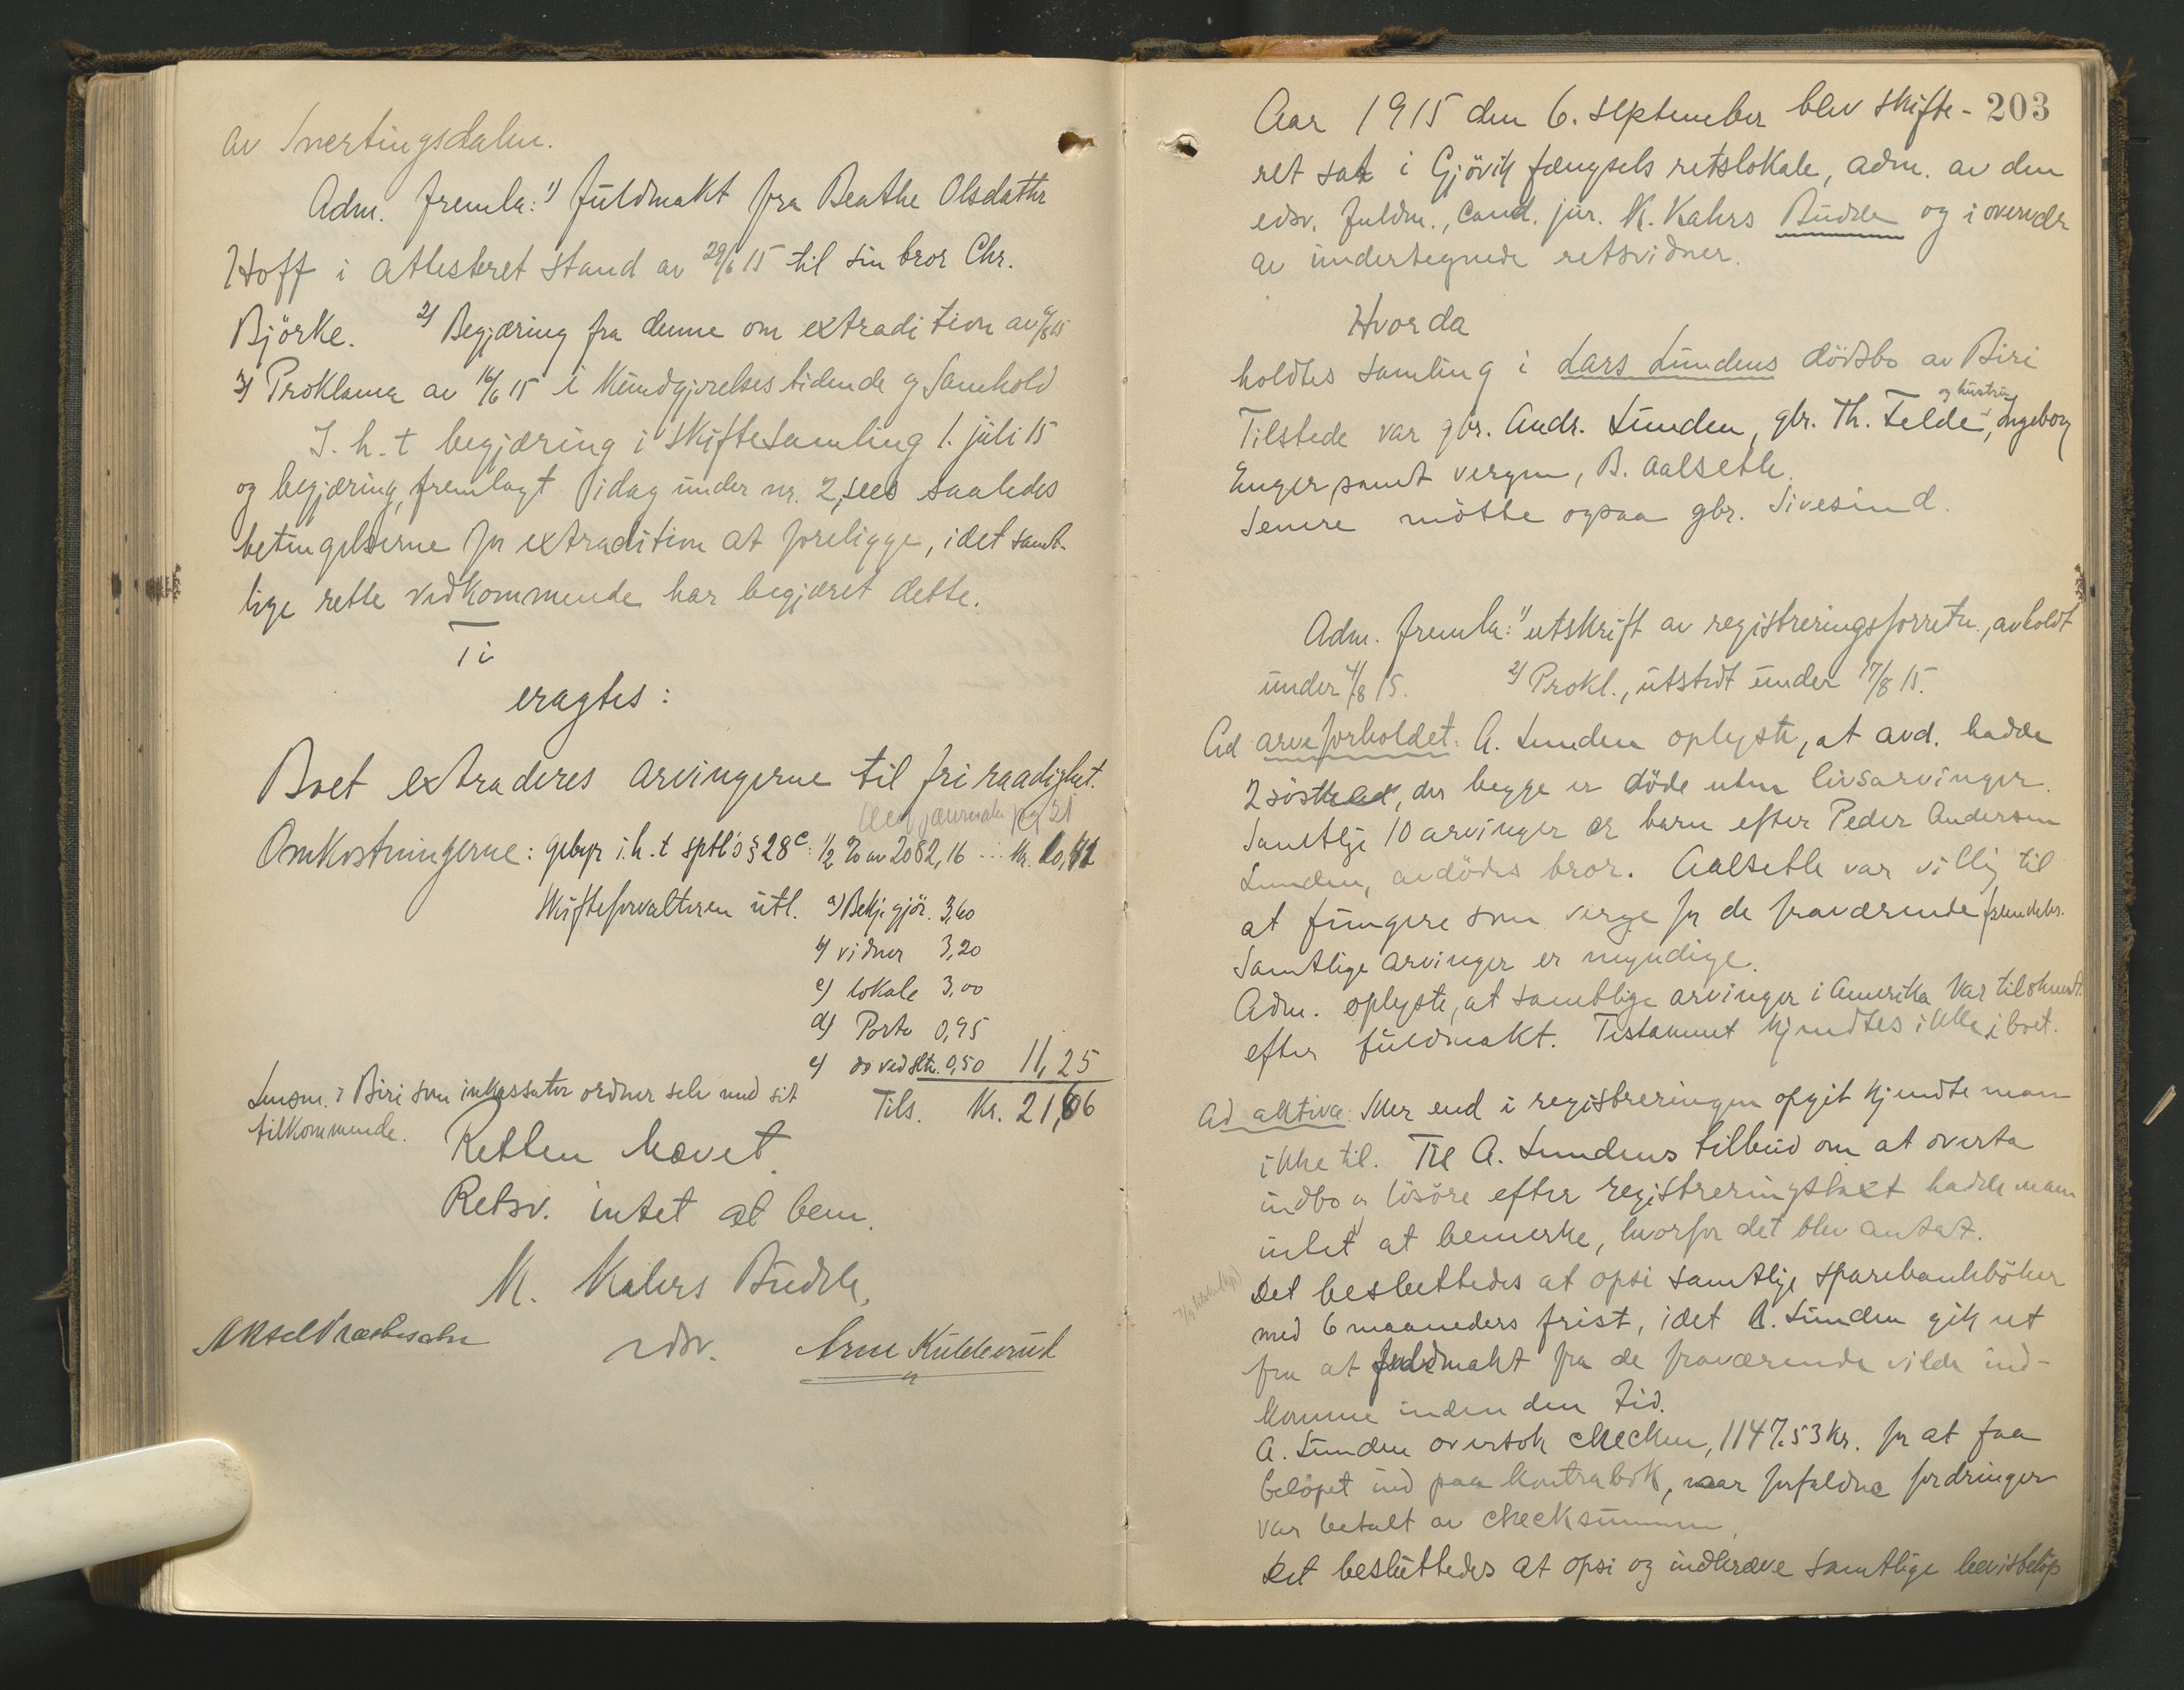 av Snertingsdalen.
Adm. fremla: 1) fuldmakt fra Beathe Olsdatter
Hoff i attesteret stand av 29/6 15 til sin bror Chr.
Björke. 2) Begjæring fra denne om extradition av /8 15
3) Proklama av 16/6 15 i Kundgjørelsestidende og Samhold
I. h. t begjæring i skiftesamling 1. juli 15
og begjæring, fremlagt idag under nr. 2, sees saaledes
betingelserne for extradition at foreligge, idet samt-
lige rette vedkommende har begjæret dette.
Ti
eragtes:
Boet extraderes arvingerne til fri raadighet.
journalen pag 21
Omkostningerne: gebyr i. h. t sptl's § 28 c: 1/2 % av 2082,16 ... Kr. 10,41
Skifteforvalteren utl. a) Bekjgjör. 3,60
b) vidner 3,20
c) lokale 3,00
d) Porto 0,95
e) do ved sltn. 0,50 11,25
Lensm. i Biri som inkassator ordner selv med sit
tilkommende.
Tils. Kr. 21,66
Retten hævet.
Retsv. intet at bem.
K. Kahrs Budde,
edsv.
Aksel Præstesæter
Arne Kulterud
203
Aar 1915 den 6. september blev skifte-
ret sat i Gjövik fængsels retslokale, adm. av den
edsv. fuldm., cand. jur. K. Kahrs Budde og i overvær
av undertegnede retsvidner.
Hvorda
holdtes samling i Lars Lundens dödsbo av Biri
og hustru
Tilstede var gbr. Andr. Lunden, gbr. Th. Felde, Ingeborg
Enger samt vergen, B. Aalseth.
Senere mötte ogsaa gbr. Sivesind.
Adm. fremla: 1) utskrift av registreringsforretn., avholdt
under 4/8 15. 2) Prokl., utstedt under 17/8 15.
Ad arveforholdet: A. Lunden oplyste, at avd. hadde
2 söstre, der begge er döde uten livsarvinger.
Samtlige 10 arvinger er barn efter Peder Andersen
Lunden, avdödes bror. Aalseth var villig til
at fungere som verge for de fraværende fremdeles.
Samtlige arvinger er myndige.
Adm. oplyste, at samtlige arvinger i Amerika var tilskrevet
efter fuldmakt. Testament kjendtes ikke i boet.
Ad aktiva: Mer end i registreringen opgit kjendte man
ikke til. Til A. Lundens tilbud om at overta
indbo og lösöre efter registreringstakst hadde man
intet at bemerke, hvorfor det blev antat.
Det besluttedes at opsi samtlige sparebankböker
med 6 maaneders frist, idet A. Lunden gik ut
fra at fuldmakt fra de fraværende vilde ind-
komme inden den tid.
A. Lunden overtok checken, 1147.53 kr. for at faa
belöpet ind paa kontrabok, naar forfaldne fordringer
var betalt av checksummen.
Det besluttedes at opsi og indkræve samtlige bevisbelöp